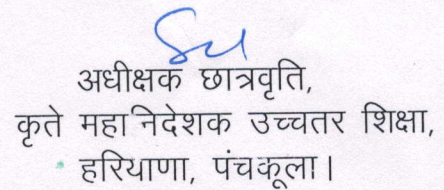 अधीक्षक छात्रवृति,
कृते महानिदेशक उच्चतर शिक्षा,
हरियाणा, पंचकूला।